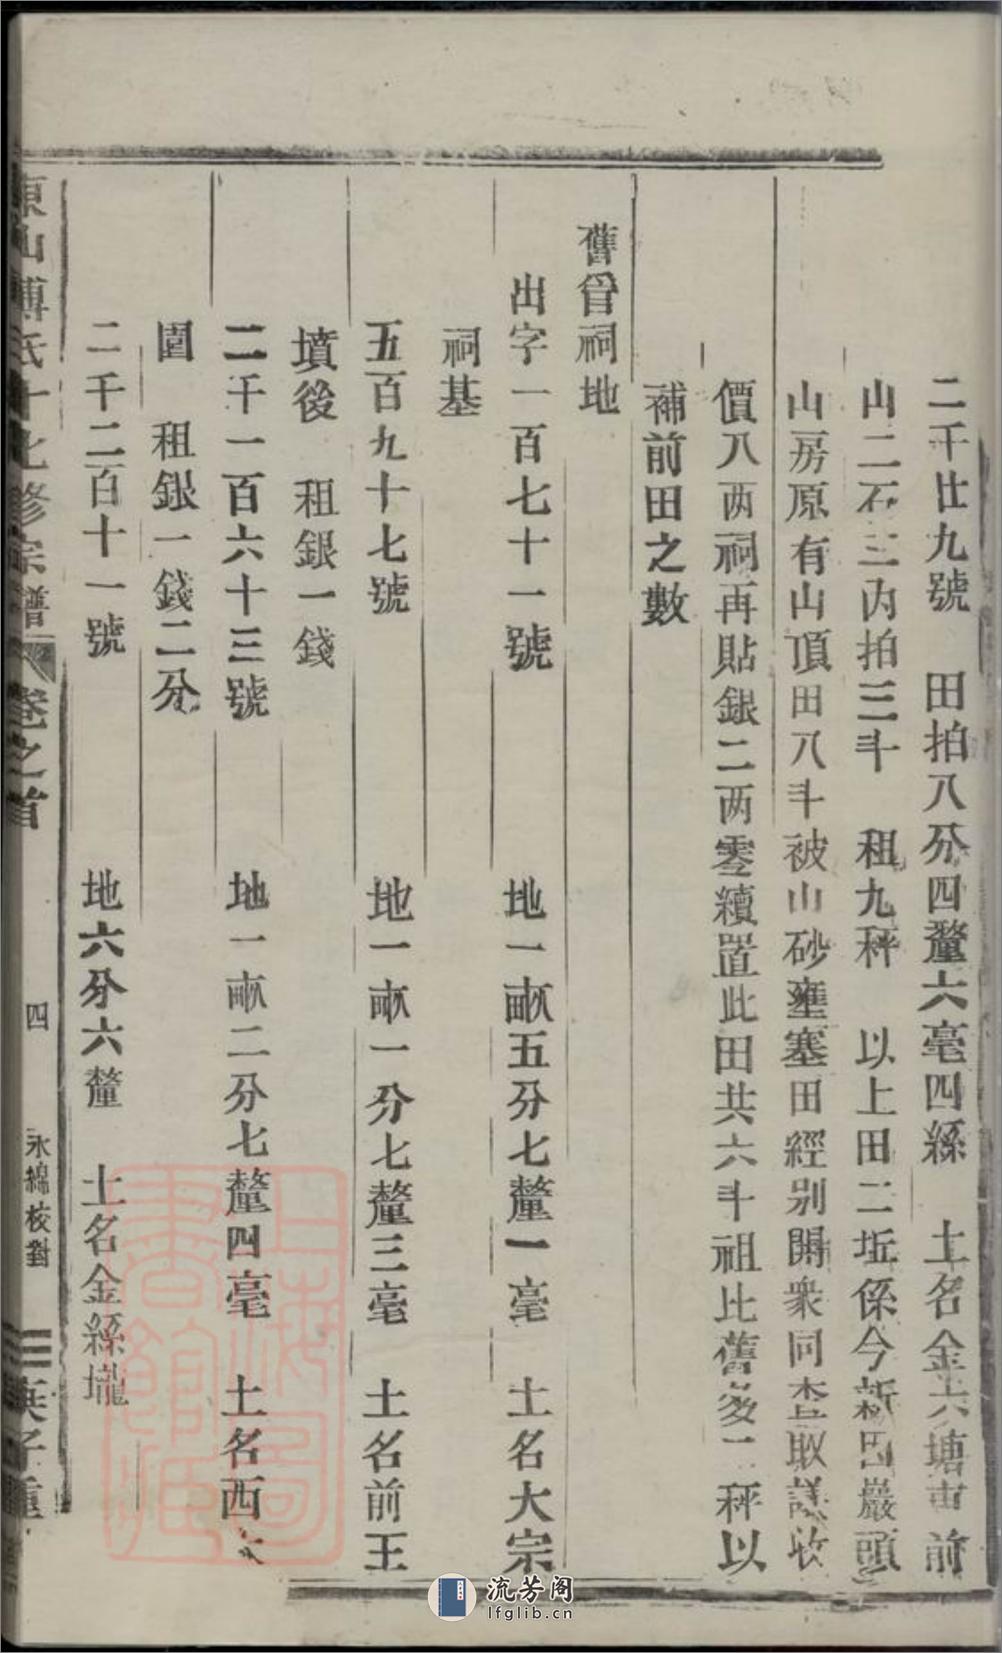 二千廿九號　田拍八分四釐六毫四絲　土名金六塘 前
山二石三內拍三斗　租九秤　以上田二坵係今新 巖頭
山房原有山頂田八斗被山砂壅塞田經别開衆同查取 收
價八两祠再貼銀二两零續置此田共六斗祖比舊多二秤以
補前田之數
舊管祠地
出字一百七十一號　地一畝五分七釐一毫　土名大宗
祠基
五百九十七號　地一畝一分七釐三毫　土名前王
墳後　租銀一錢
二千一百六十三號　地一畝二分七釐四毫　土名西
園　租銀一錢二分
二千二百十一號　地六分六釐　土名金絲壠
東山傅氏十七修宗譜　卷之首　四　永綿校對
上海圖書館藏
流芳阁
lfglib.cn